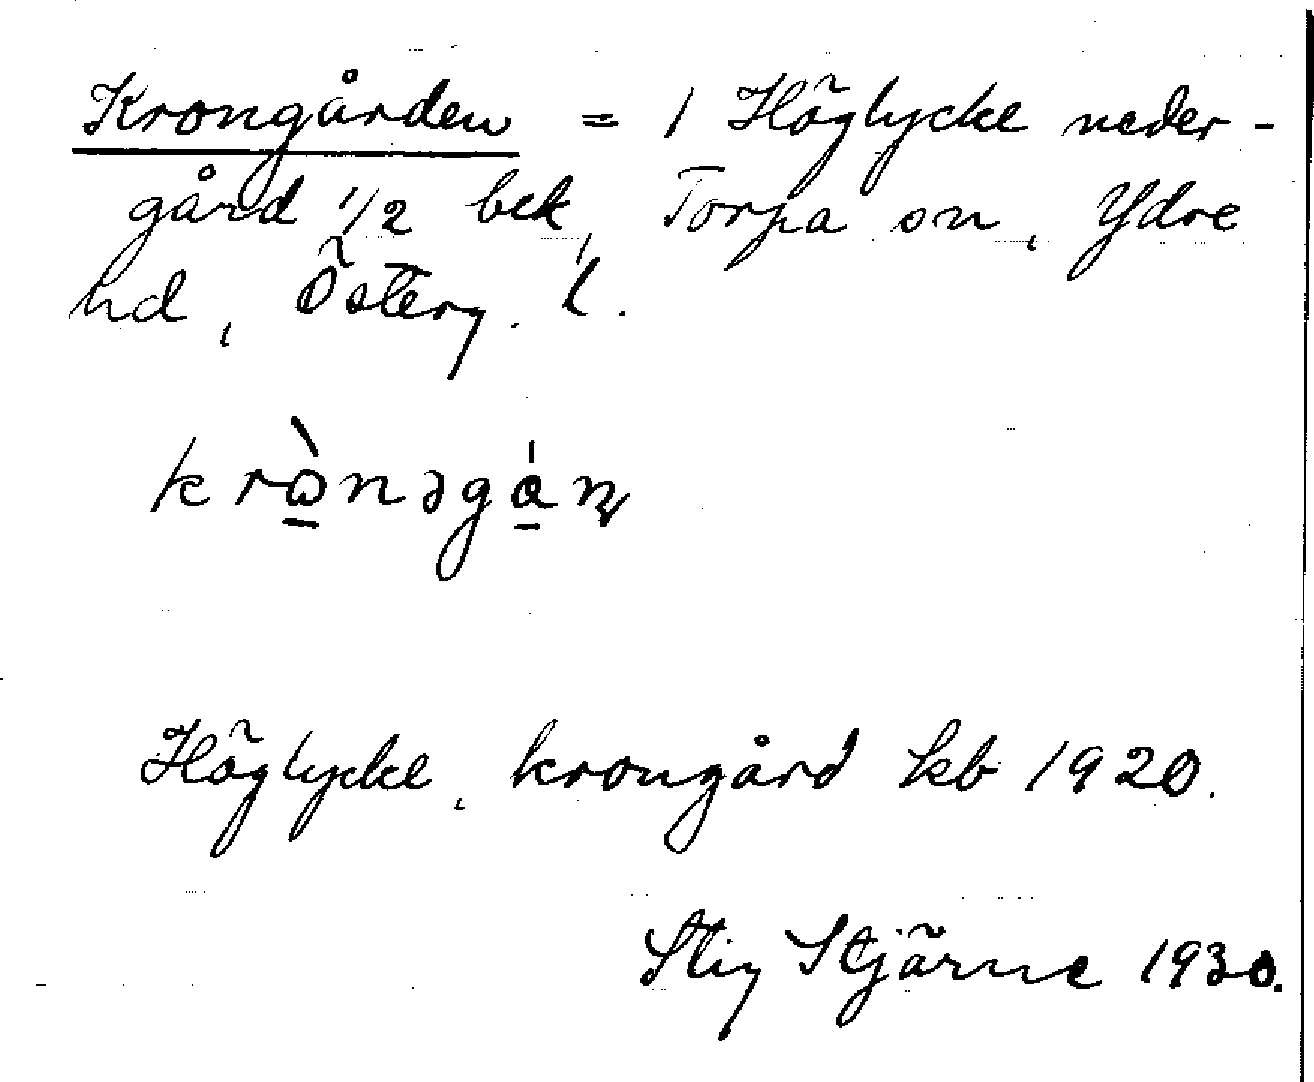 Krongården = 1 Höglycke neder-
gård 1/2 bek, Torpa sn, Ydre
hd, Österg. l.
krὼ̱nəgá̱ɳ
Höglycke, krongård kb 1920.
Stig Stjärne 1930.